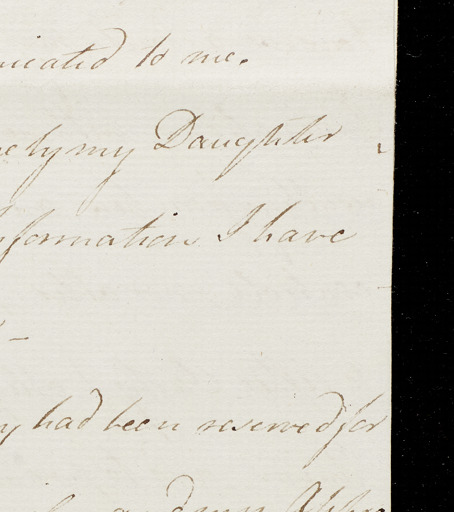 nicated to me.
ly my Daughter
nformation I have
-
y had been reserved for
and my